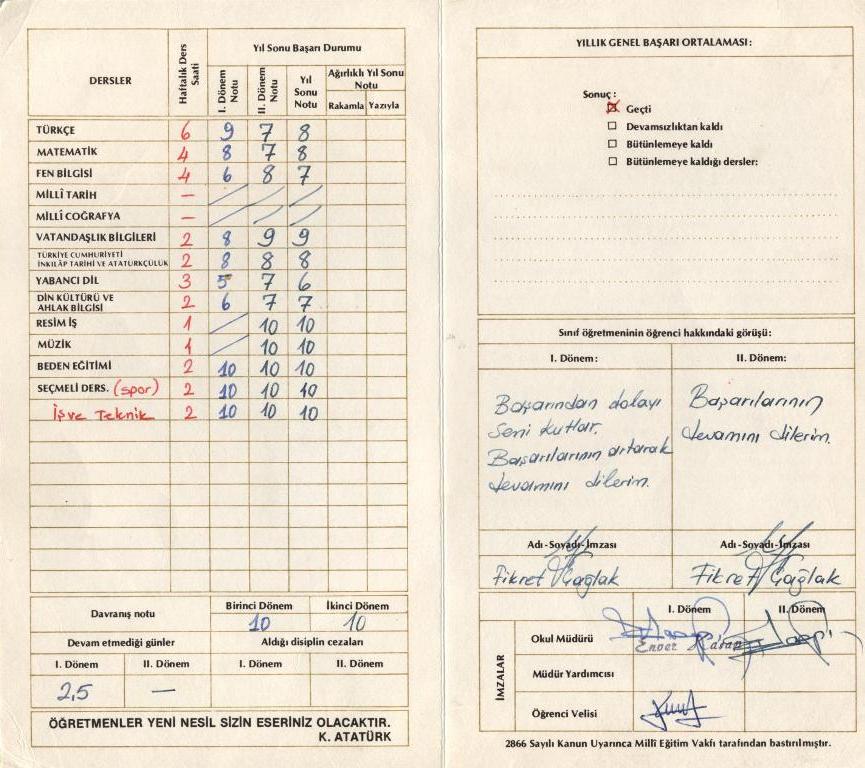 DERSLER
Haftalık Ders Saati
Yıl Sonu Başarı Durumu
I. Dönem Notu
II. Dönem Notu
Yıl Sonu Notu
Ağırlıklı Yıl Sonu Notu
Rakamla Yazıyla
TÜRKÇE 6 9 7 8
MATEMATİK 4 8 7 8
FEN BİLGİSİ 4 6 8 7
MİLLÎ TARİH —
MİLLÎ COĞRAFYA —
VATANDAŞLIK BİLGİLERİ 2 8 9 9
TÜRKİYE CUMHURİYETİ
İNKILÂP TARİHİ VE ATATÜRKÇÜLÜK 2 8 8 8
YABANCI DİL 3 5 7 6
DİN KÜLTÜRÜ VE
AHLAK BİLGİSİ 2 6 7 7
RESİM İŞ 1 10 10
MÜZİK 1 10 10
BEDEN EĞİTİMİ 2 10 10 10
SEÇMELİ DERS. (spor) 2 10 10 10
İş ve Teknik 2 10 10 10
Davranış notu
Birinci Dönem İkinci Dönem
10 10
Devam etmediği günler Aldığı disiplin cezaları
I. Dönem II. Dönem I. Dönem II. Dönem
2,5 —
ÖĞRETMENLER YENİ NESİL SİZİN ESERİNİZ OLACAKTIR.
K. ATATÜRK
YILLIK GENEL BAŞARI ORTALAMASI:
Sonuç:
Geçti
Devamsızlıktan kaldı
Bütünlemeye kaldı
Bütünlemeye kaldığı dersler:
Sınıf öğretmeninin öğrenci hakkındaki görüşü:
I. Dönem: II. Dönem:
Başarından dolayı
seni kutlar.
Başarılarının artarak
devamını dilerim.
Başarılarının
devamını dilerim.
Adı-Soyadı-İmzası Adı-Soyadı-İmzası
Fikret Çağlak Fikret Çağlak
İMZALAR
I. Dönem II. Dönem
Okul Müdürü
Enver
Müdür Yardımcısı
Öğrenci Velisi
2866 Sayılı Kanun Uyarınca Millî Eğitim Vakfı tarafından bastırılmıştır.